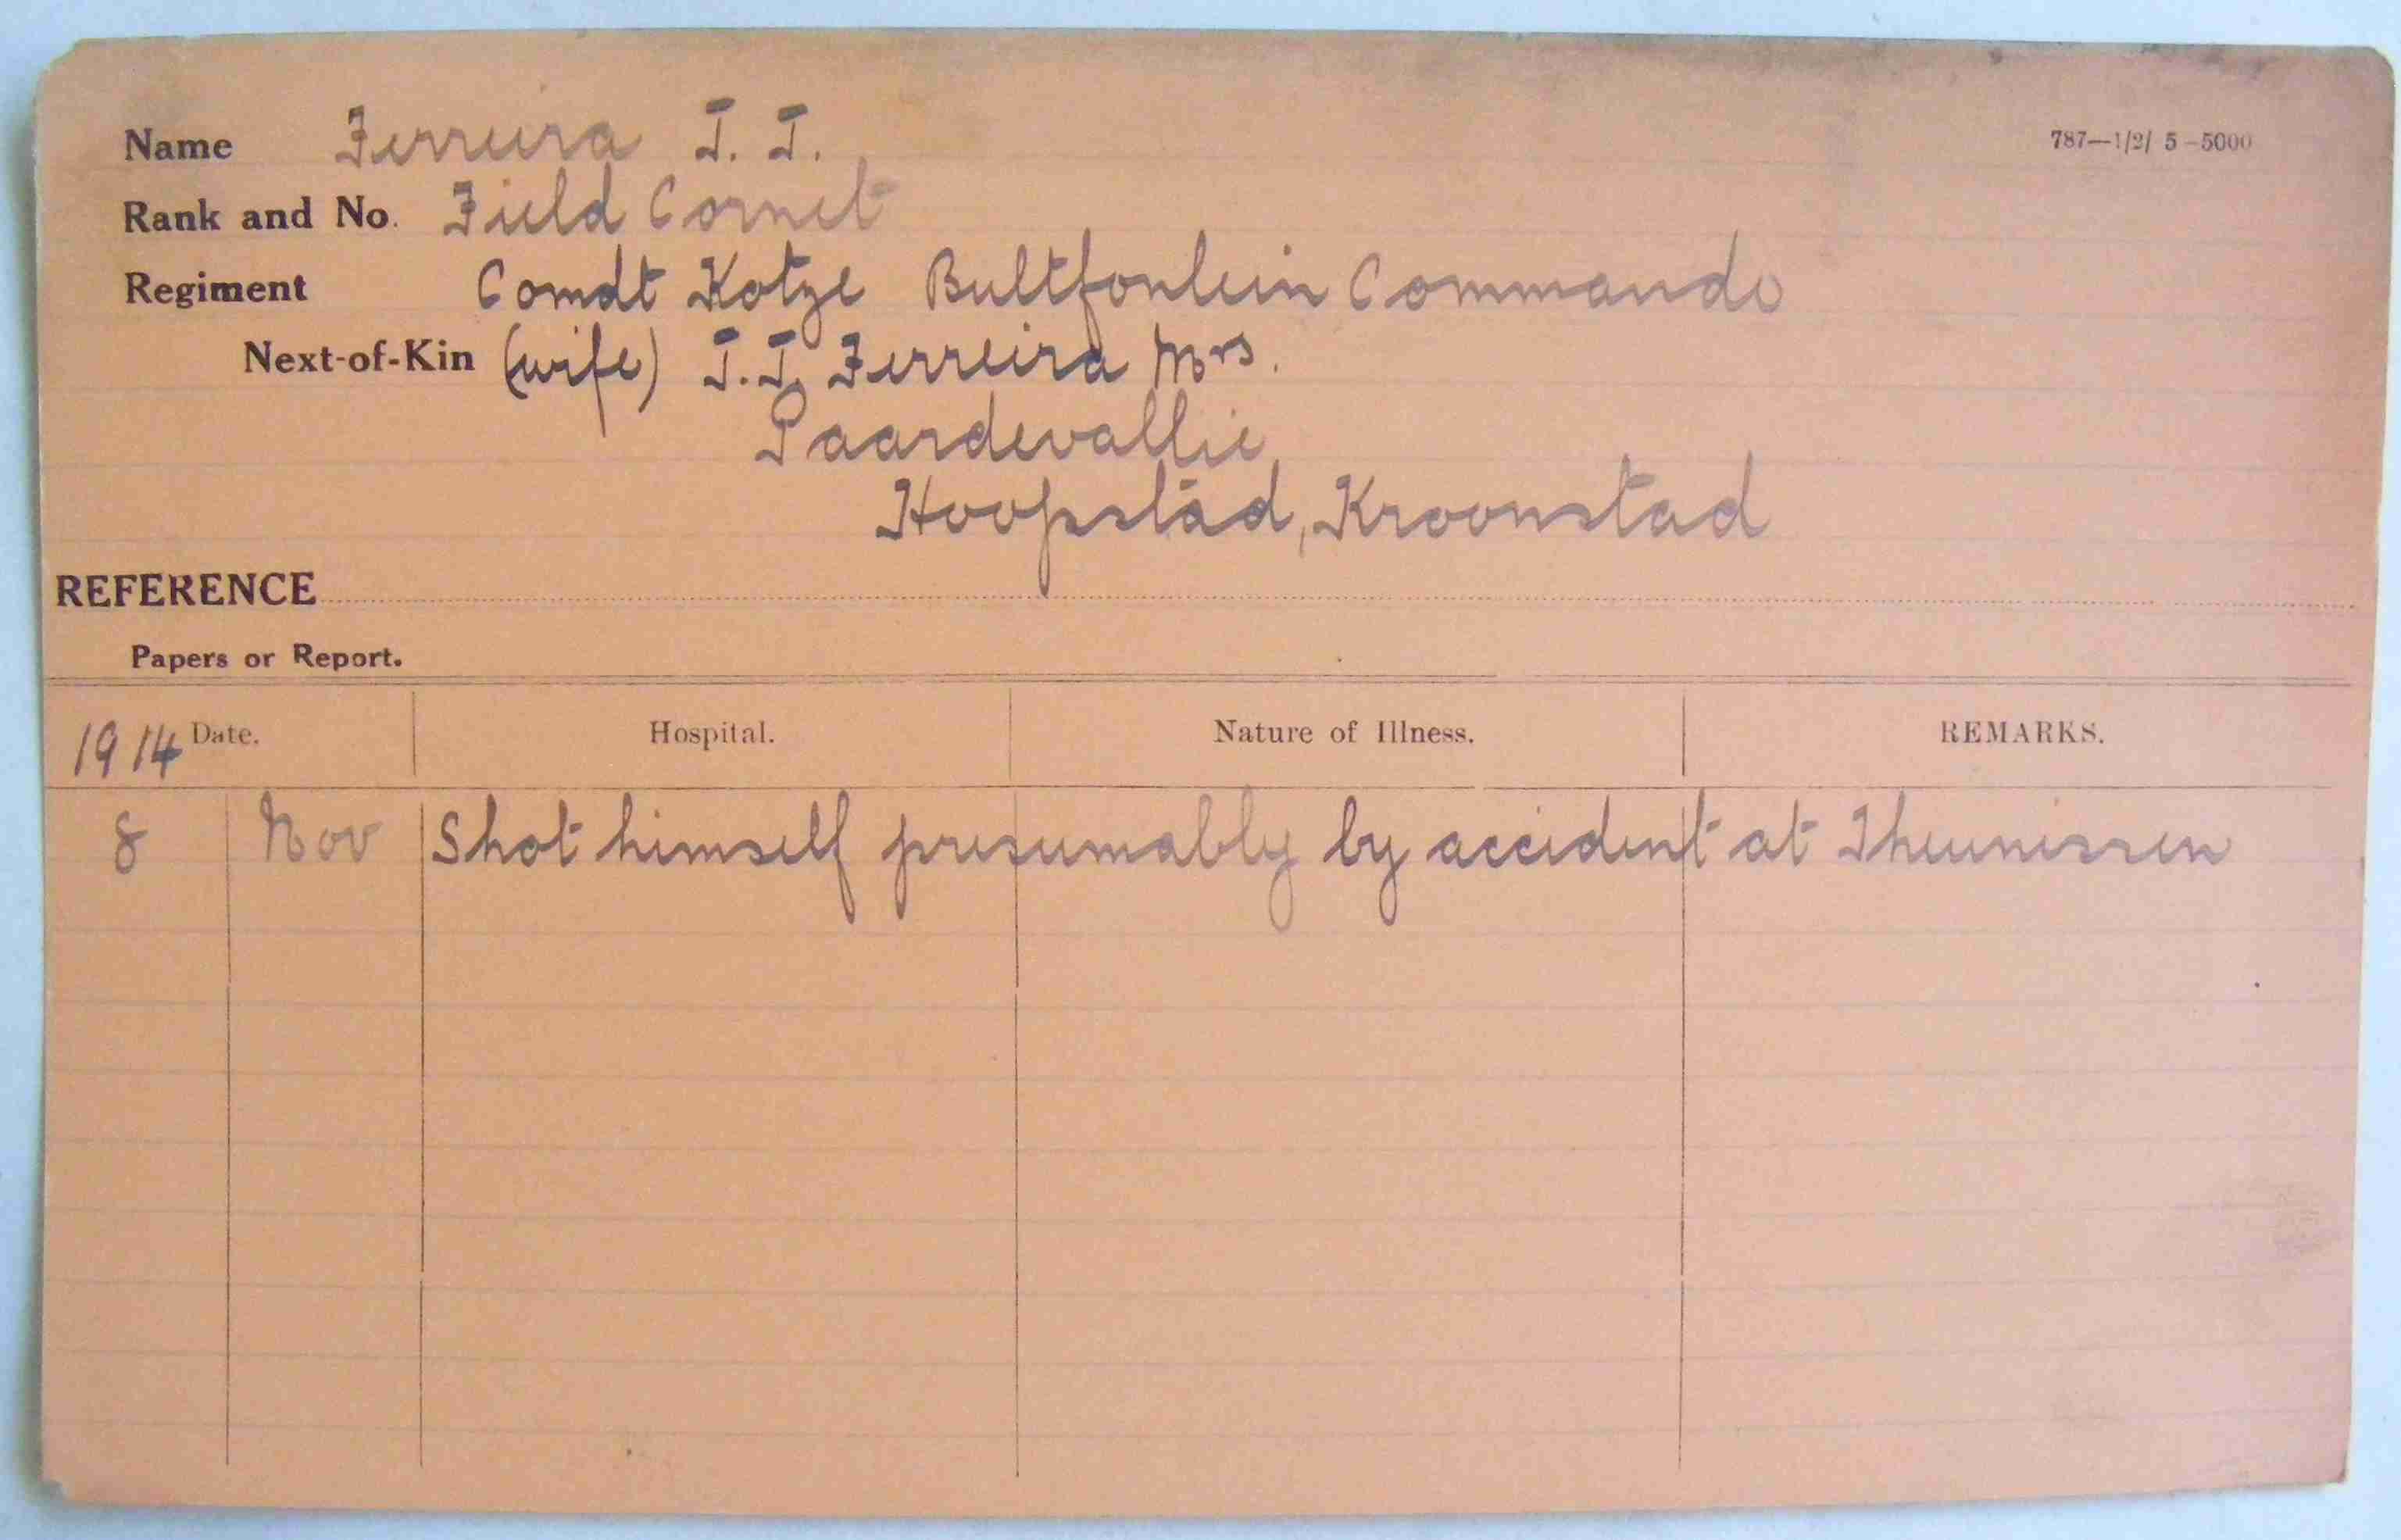 Name Ferreira I. I.
787—1/2/ 5–5000
Rank and No. Field Cornet
Regiment Comdt Kotze Bultfontein Commando
Next-of-Kin (wife) I. I. Ferreira Mrs.
Paardevallie
Hoopstad, Kroonstad
REFERENCE
Papers or Report.
1914 Date. Hospital. Nature of Illness. REMARKS.
8 Nov Shot himself presumably by accident at Theunissen